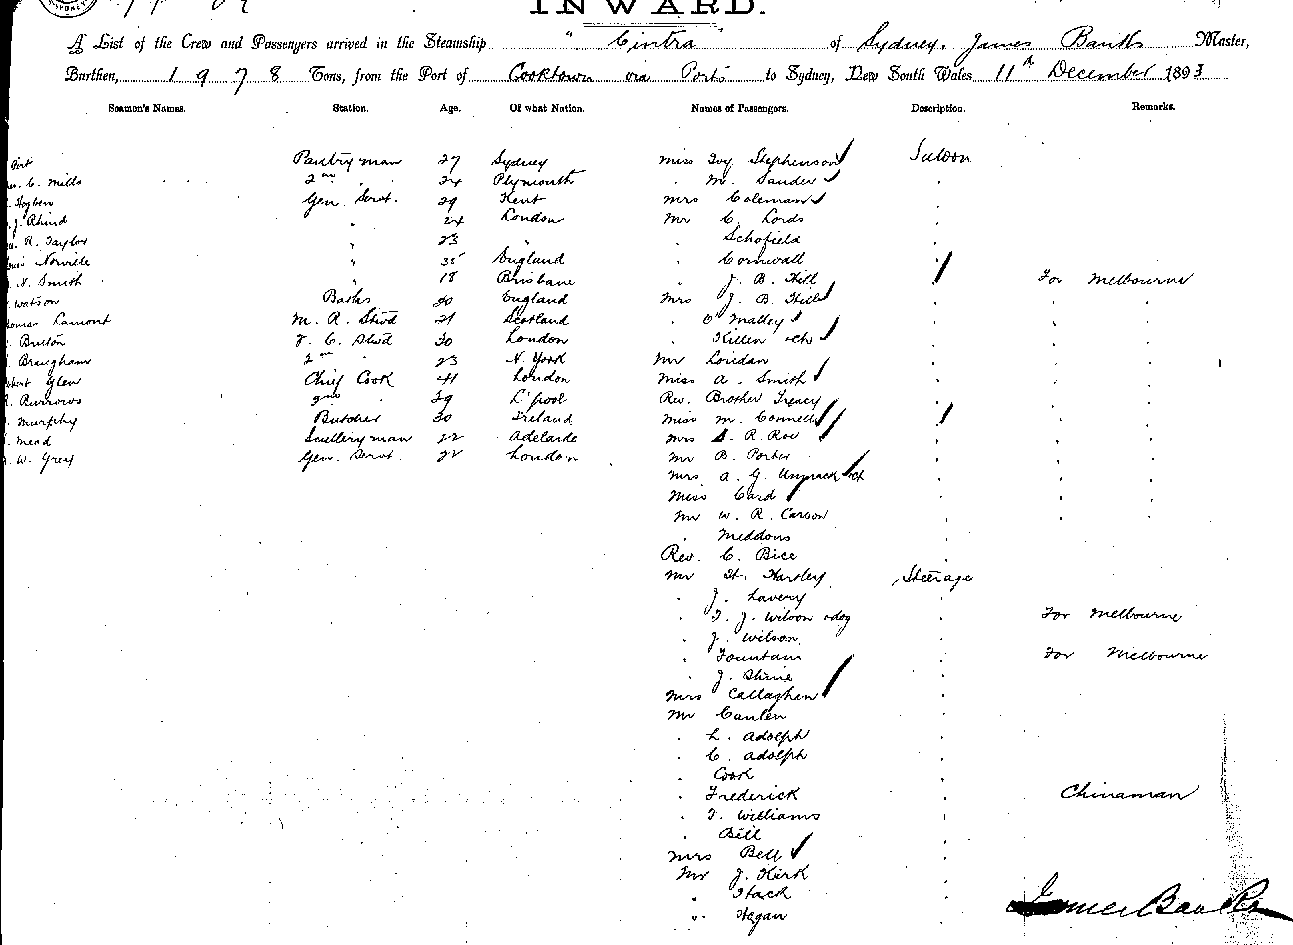 INWARD.
A List of the Crew and Passengers arrived in the Steamship "Cintra" of Sydney, James Banks Master,
Burthen, 1978 Tons, from the Port of Cooktown via Ports to Sydney, New South Wales 11th December 1893
Seamen's Names. Station. Age. Of what Nation. Names of Passengers. Description. Remarks.
Port Pantryman 27 Sydney Miss Ivy Stephenson Saloon
C. Mills 2nd " 24 Plymouth " M. Sander "
Hogben Gen. Servt. 29 Kent Mrs Coleman "
J. Rhind " 24 London Mr C. Lords "
R. Taylor " 23 " " Schofield "
Norville " 35 England " Cornwall "
N. Smith " 18 Brisbane " J. B. Hill " For Melbourne
Watson Baths 20 England Mrs J. B. Hill " " "
Lamont M. R. Stwd 21 Scotland " O'Malley " " "
Bruton F. C. Stwd 30 London " Killen + ch " " "
Brangham 2nd " 23 N. York Mr Loudan " " "
Glen Chief Cook 41 London Miss A. Smith " " "
Burrows 2nd 29 L'pool Rev. Brother Treacy " " "
Murphy Butcher 30 Ireland Miss M. Connell " " "
Mead Scullery man 22 Adelaide Mrs R. Roe " " "
W. Grey Gen. Servt. 22 London Mr B. Porter " " "
Mrs A. G. + ch " " "
Miss Card " " "
Mr W. R. Carson " " "
" Meddows "
Rev. C. Bice "
Mr H. Hartley Steerage
" J. Lavery "
" T. J. Wilson + dog " For Melbourne
" J. Wilson "
" Fountain " For Melbourne
" J. Shine "
Mrs Callaghan "
Mr Canlen "
" L. Adolph "
" C. Adolph "
" Cook "
" Frederick " Chinaman
" T. Williams "
" Bill "
Mrs Bell "
Mr J. Kirk "
" Stack "
" Hogan "
James Banks